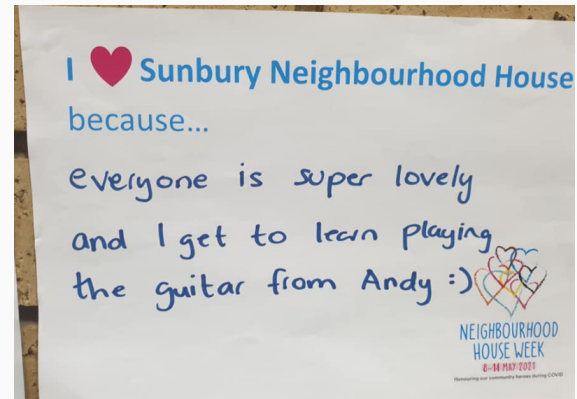 I ♥ Sunbury Neighbourhood House
because...
everyone is super lovely
and I get to learn playing
the guitar from Andy :)
NEIGHBOURHOOD
HOUSE WEEK
8–14 MAY 2021
Honouring our community heroes during COVID